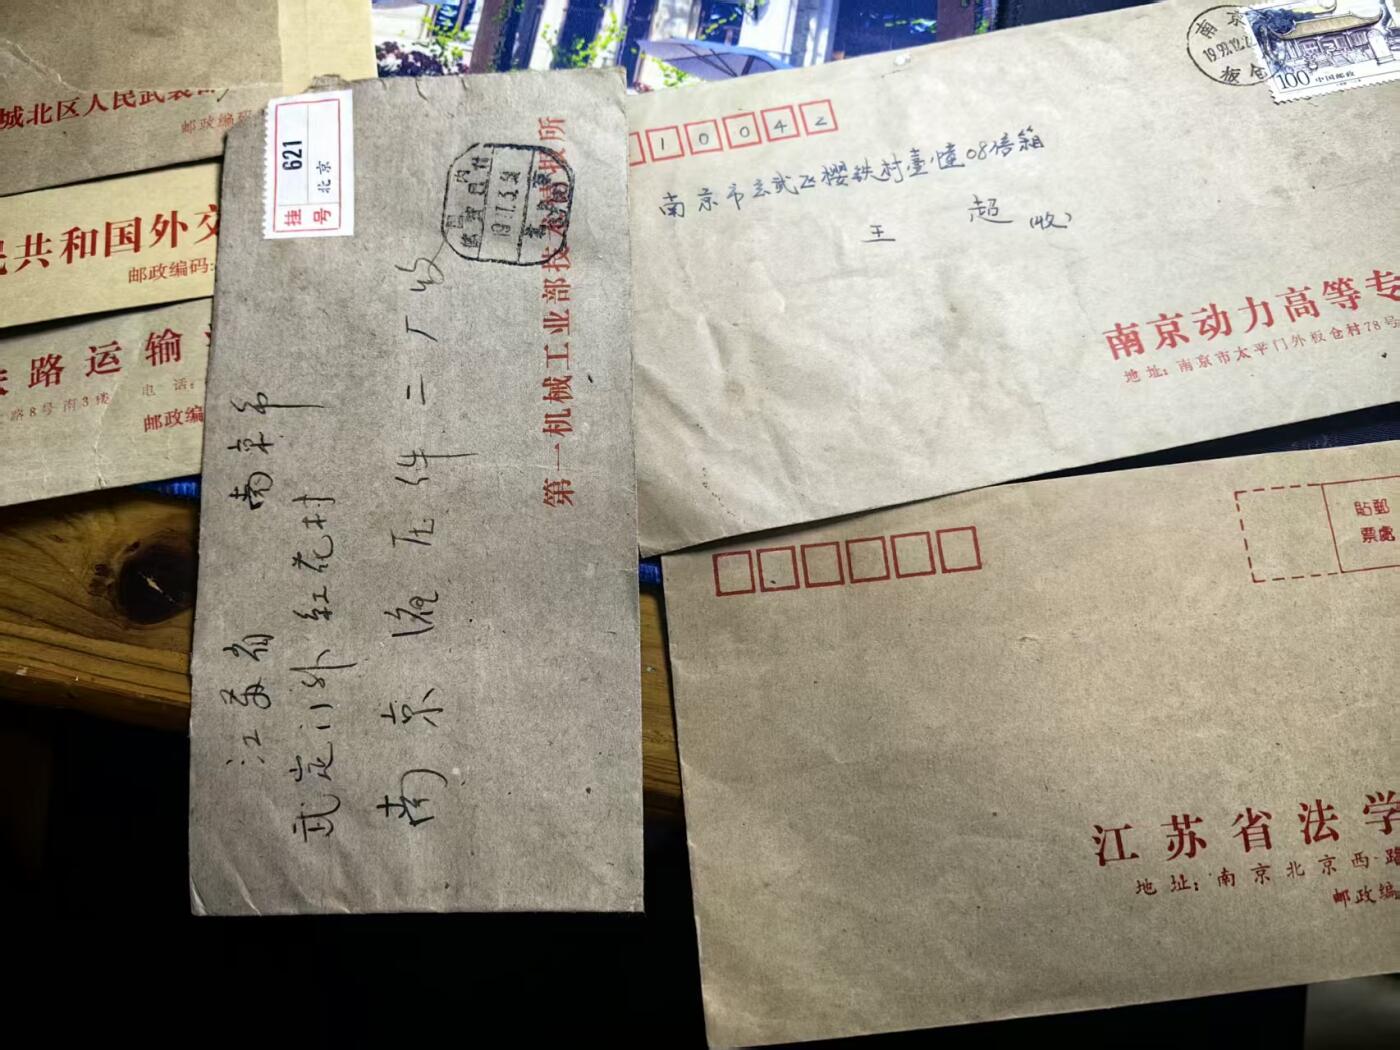 城北区人民武装部
邮政编码
民共和国外交
邮政编码:
铁路运输
路8号南3楼 电话:
邮政编
621
北京
挂号
国内
邮资已付
江苏省 南京市
武定门外红花村
南京液压件二厂收
第一机械工业部技术情报所
10042
南京市玄武区樱铁村壹幢08信箱
王 超(收)
南京
板仓
100 中国邮政
南京动力高等专
地址:南京市太平门外板仓村78号
貼郵
票處
江苏省法学
地址:南京北京西路
邮政编